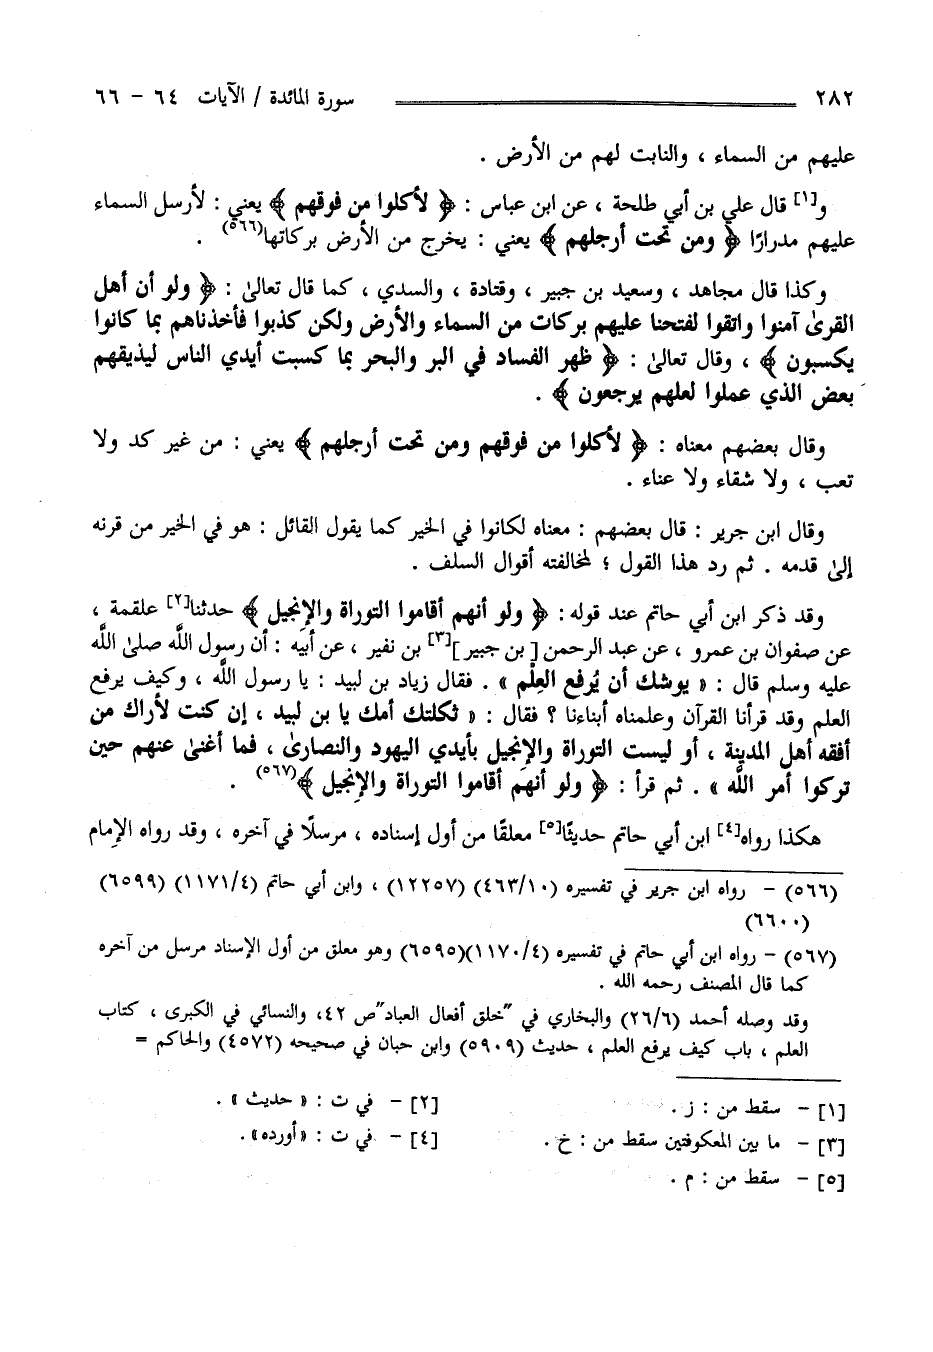 ٢٨٢ سورة المائدة / الآيات ٦٤ - ٦٦
عليهم من السماء ، والنابت لهم من الأرض .
و[١] قال علي بن أبي طلحة ، عن ابن عباس : ﴿ لأكلوا من فوقهم ﴾ يعني : لأرسل السماء
عليهم مدرارًا ﴿ ومن تحت أرجلهم ﴾ يعني : يخرج من الأرض بركاتها(٥٦٦) .
وكذا قال مجاهد ، وسعيد بن جبير ، وقتادة ، والسدي ، كما قال تعالىٰ : ﴿ ولو أن أهل
القرىٰ آمنوا واتقوا لفتحنا عليهم بركات من السماء والأرض ولكن كذبوا فأخذناهم بما كانوا
يكسبون ﴾ ، وقال تعالىٰ : ﴿ ظهر الفساد في البر والبحر بما كسبت أيدي الناس ليذيقهم
بعض الذي عملوا لعلهم يرجعون ﴾ .
وقال بعضهم معناه : ﴿ لأكلوا من فوقهم ومن تحت أرجلهم ﴾ يعني : من غير كد ولا
تعب ، ولا شقاء ولا عناء .
وقال ابن جرير : قال بعضهم : معناه لكانوا في الخير كما يقول القائل : هو في الخير من قرنه
إلىٰ قدمه . ثم رد هذا القول ؛ لمخالفته أقوال السلف .
وقد ذكر ابن أبي حاتم عند قوله : ﴿ ولو أنهم أقاموا التوراة والإنجيل ﴾ حدثنا[٢] علقمة ،
عن صفوان بن عمرو ، عن عبد الرحمن [ بن جبير ][٣] بن نفير ، عن أبيه : أن رسول اللَّه صلىٰ اللَّه
عليه وسلم قال : « يوشك أن يُرفع العِلْم » . فقال زياد بن لبيد : يا رسول اللَّه ، وكيف يرفع
العلم وقد قرأنا القرآن وعلمناه أبناءنا ؟ فقال : « ثكلتك أمك يا بن لبيد ، إن كنت لأراك من
أفقه أهل المدينة ، أو ليست التوراة والإنجيل بأيدي اليهود والنصارىٰ ، فما أغنىٰ عنهم حين
تركوا أمر اللَّه » . ثم قرأ : ﴿ ولو أنهم أقاموا التوراة والإنجيل ﴾(٥٦٧) .
هكذا رواه[٤] ابن أبي حاتم حديثًا[٥] معلقا من أول إسناده ، مرسلًا في آخره ، وقد رواه الإمام
(٥٦٦) - رواه ابن جرير في تفسيره (٤٦٣/١٠) (١٢٢٥٧) ، وابن أبي حاتم (١١٧١/٤) (٦٥٩٩)
(٦٦٠٠)
(٥٦٧) - رواه ابن أبي حاتم في تفسيره (١١٧٠/٤)(٦٥٩٥) وهو معلق من أول الإسناد مرسل من آخره
كما قال المصنف رحمه الله .
وقد وصله أحمد (٢٦/٦) والبخاري في "خلق أفعال العباد"ص ٤٢، والنسائي في الكبرى ، كتاب
العلم ، باب كيف يرفع العلم ، حديث (٥٩٠٩) وابن حبان في صحيحه (٤٥٧٢) والحاكم =
[١] - سقط من : ز . [٢] - في ت : « حديث » .
[٣] - ما بين المعكوفتين سقط من : خ . [٤] - في ت : «أورده» .
[٥] - سقط من : م .